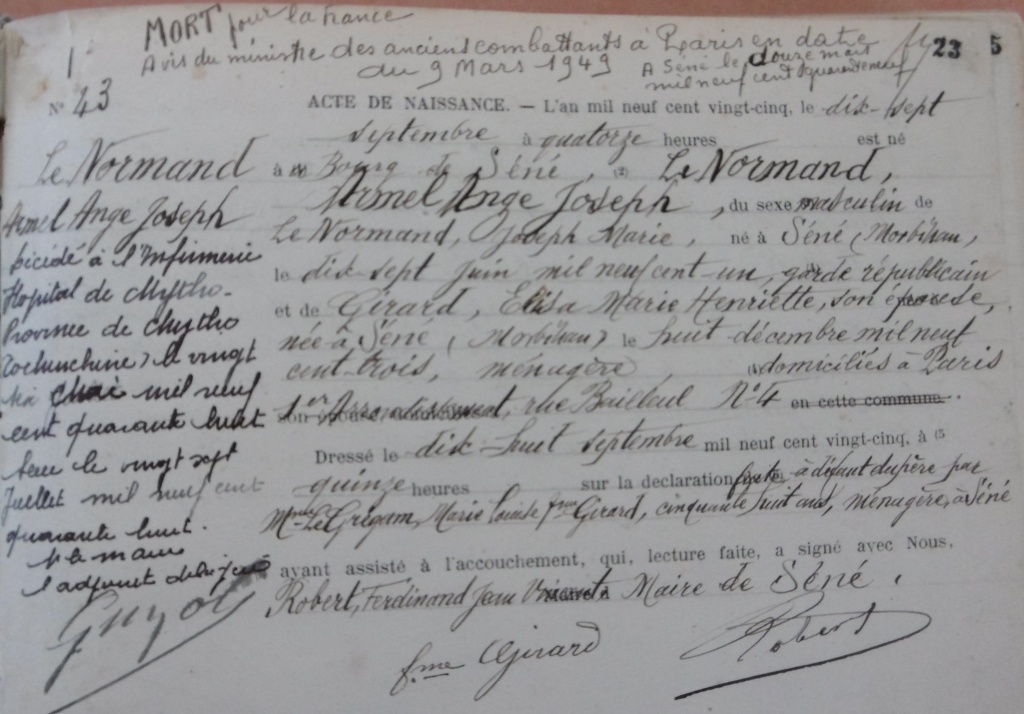 MORT pour la France
Avis du ministre des anciens combattants à Paris en date
du 9 Mars 1949 A Séné le douze mars
mil neuf cent quarante neuf
23 5
N° 43
ACTE DE NAISSANCE. — L'an mil neuf cent vingt-cinq, le dix-sept
septembre à quatorze heures est né
à Bourg de Séné, Le Normand,
Armel Ange Joseph, du sexe masculin de
Le Normand, Joseph Marie, né à Séné (Morbihan,
le dix sept juin mil neuf cent-un, garde républicain
et de Girard, Elisa Marie Henriette, son épouse,
née à Séné (Morbihan) le huit décembre mil neuf
cent-trois, ménagère, domiciliés à Paris
1er Arrondissement, rue Bailleul N° 4 en cette commune.
Dressé le dix-huit septembre mil neuf cent vingt-cinq, à
quinze heures sur la declaration faite à défaut du père par
Mme Le Grégam, Marie Louise fme Girard, cinquante huit ans, ménagère, à Séné
ayant assisté à l'accouchement, qui, lecture faite, a signé avec Nous,
Robert, Ferdinand Jean Maire de Séné.
fme Girard Robert
Le Normand
Armel Ange Joseph
Décédé à l'Infirmerie
Hopital de Mytho-
Province de Mytho
Cochinchine) le vingt
Mai mil neuf
cent quarante huit
le vingt sept
Juillet mil neuf cent
quarante huit.
P. le maire
l'adjoint délégué
Guyot